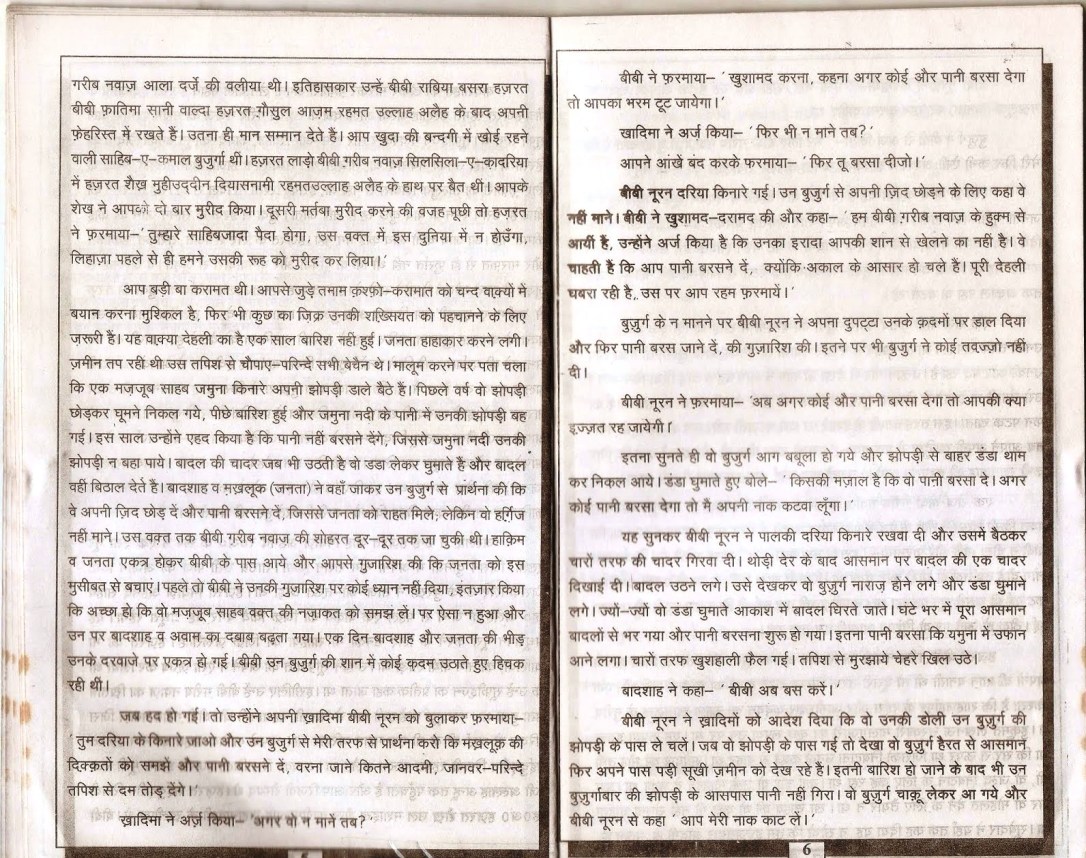 गरीब नवाज़ आला दर्जे की वलीया थी। इतिहासकार उन्हें बीबी राबिया बसरा हज़रत
बीबी फ़ातिमा सानी वाल्दा हज़रत ग़ौसुल आज़म रहमत उल्लाह अलैह के बाद अपनी
फ़ेहरिस्त में रखते हैं। उतना ही मान सम्मान देते हैं। आप खुदा की बन्दगी में खोई रहने
वाली साहिब-ए-कमाल बुज़ुर्गा थीं। हज़रत लाड़ो बीबी ग़रीब नवाज़ सिलसिला-ए-क़ादरिया
में हज़रत शैख़ मुहीउद्दीन दियासनामी रहमतउल्लाह अलैह के हाथ पर बैत थीं। आपके
शेख ने आपको दो बार मुरीद किया। दूसरी मर्तबा मुरीद करने की वजह पूछी तो हज़रत
ने फ़रमाया– 'तुम्हारे साहिबजादा पैदा होगा, उस वक्त में इस दुनिया में न होउँगा,
लिहाज़ा पहले से ही हमने उसकी रूह को मुरीद कर लिया।'
आप बड़ी बा करामत थी। आपसे जुड़े तमाम क़श्फ़ो-करामात को चन्द वाक़्यों में
बयान करना मुशिकल है, फिर भी कुछ का जिक्र उनकी शख़्सियत को पहचानने के लिए
ज़रूरी हैं। यह वाक़्या देहली का है एक साल बारिश नहीं हुई। जनता हाहाकार करने लगी।
ज़मीन तप रही थी उस तपिश से चौपाए-परिन्दे सभी बेचैन थे। मालूम करने पर पता चला
कि एक मज़जूब साहब जमुना किनारे अपनी झोपड़ी डाले बैठे हैं। पिछले वर्ष वो झोपड़ी
छोड़कर घूमने निकल गये, पीछे बारिश हुई और जमुना नदी के पानी में उनकी झोपड़ी बह
गई। इस साल उन्होंने एहद किया है कि पानी नहीं बरसने देंगे, जिससे जमुना नदी उनकी
झोपड़ी न बहा पाये। बादल की चादर जब भी उठती है वो डडा लेकर घुमाते हैं और बादल
वही बिठाल देते हैं। बादशाह व मख़लूक (जनता) ने वहाँ जाकर उन बुज़ुर्ग से प्रांर्थना की कि
वे अपनी ज़िद छोड़ दें और पानी बरसने दें, जिससे जनता को राहत मिले, लेकिन वो हर्गिज
नहीं माने। उस वक़्त तक बीबी ग़रीब नवाज़ की शोहरत दूर-दूर तक जा चुकी थी। हाक़िम
व जनता एकत्र होकर बीबी के पास आये और आपसे गुजारिश की कि जनता को इस
मुसीबत से बचाएं। पहले तो बीबी ने उनकी गुज़ारिश पर कोई ध्यान नहीं दिया, इंतज़ार किया
कि अच्छा हो कि वो मज़जूब साहब वक्त की नज़ाकत को समझ लें। पर ऐसा न हुआ और
उन पर बादशाह व अवाम का दबाब बढ़ता गया। एक दिन बादशाह और जनता की भीड़
उनके दरवाजे पर एकत्र हो गई। बीबी उन बुज़ुर्ग की शान में कोई क़दम उठाते हुए हिचक
रही थीं।
जब हद हो गई। तो उन्होंने अपनी ख़ादिमा बीबी नूरन को बुलाकर फ़रमाया–
'तुम दरिया के किनारे जाओ और उन बुजुर्ग से मेरी तरफ से प्रार्थना करो कि मख़लूक़ की
दिक़्क़तों को समझें और पानी बरसने दें, वरना जाने कितने आदमी, जानवर-परिन्दे
तपिश से दम तोड़ देंगे।'
ख़ादिमा ने अर्ज़ किया– 'अगर वो न मानें तब?'
बीबी ने फ़रमाया– 'खुशामद करना, कहना अगर कोई और पानी बरसा देगा
तो आपका भरम टूट जायेगा।'
खादिमा ने अर्ज किया– 'फिर भी न माने तब?'
आपने आंखे बंद करके फरमाया– 'फिर तू बरसा दीजो।'
बीबी नूरन दरिया किनारे गई। उन बुजुर्ग से अपनी ज़िद छोड़ने के लिए कहा वे
नहीं माने। बीबी ने खुशामद-दरामद की और कहा– 'हम बीबी ग़रीब नवाज़ के हुक्म से
आयीं हैं, उन्होंने अर्ज किया है कि उनका इरादा आपकी शान से खेलने का नहीं है। वे
चाहती हैं कि आप पानी बरसने दें, क्योंकि अकाल के आसार हो चले हैं। पूरी देहली
घबरा रही है, उस पर आप रहम फ़रमायें।'
बुज़ुर्ग के न मानने पर बीबी नूरन ने अपना दुपट्टा उनके क़दमों पर डाल दिया
और फिर पानी बरस जाने दें, की गुज़ारिश की। इतने पर भी बुजुर्ग ने कोई तवज्ज़ो नहीं
दी।
बीबी नूरन ने फ़रमाया– 'अब अगर कोई और पानी बरसा देगा तो आपकी क्या
इज़्ज़त रह जायेगी।'
इतना सुनते ही वो बुजुर्ग आग बबूला हो गये और झोपड़ी से बाहर डंडा थाम
कर निकल आये। डंडा घुमाते हुए बोले– 'किसकी मज़ाल है कि वो पानी बरसा दे। अगर
कोई पानी बरसा देगा तो मैं अपनी नाक कटवा लूँगा।'
यह सुनकर बीबी नूरन ने पालकी दरिया किनारे रखवा दी और उसमें बैठकर
चारों तरफ की चादर गिरवा दी। थोड़ी देर के बाद आसमान पर बादल की एक चादर
दिखाई दी। बादल उठने लगे। उसे देखकर वो बुजुर्ग नाराज़ होने लगे और डंडा घुमाने
लगे। ज्यों-ज्यों वो डंडा घुमाते आकाश में बादल घिरते जाते। घंटे भर में पूरा आसमान
बादलों से भर गया और पानी बरसना शुरू हो गया। इतना पानी बरसा कि यमुना में उफान
आने लगा। चारों तरफ खुशहाली फैल गई। तपिश से मुरझाये चेहरे खिल उठे।
बादशाह ने कहा– 'बीबी अब बस करें।'
बीबी नूरन ने ख़ादिमों को आदेश दिया कि वो उनकी डोली उन बुज़ुर्ग की
झोपड़ी के पास ले चले। जब वो झोपड़ी के पास गई तो देखा वो बुजुर्ग हैरत से आसमान
फिर अपने पास पड़ी सूखी ज़मीन को देख रहे हैं। इतनी बारिश हो जाने के बाद भी उन
बुज़ुर्गाबार की झोपड़ी के आसपास पानी नहीं गिरा। वो बुजुर्ग चाक़ू लेकर आ गये और
बीबी नूरन से कहा 'आप मेरी नाक काट लें।'
6